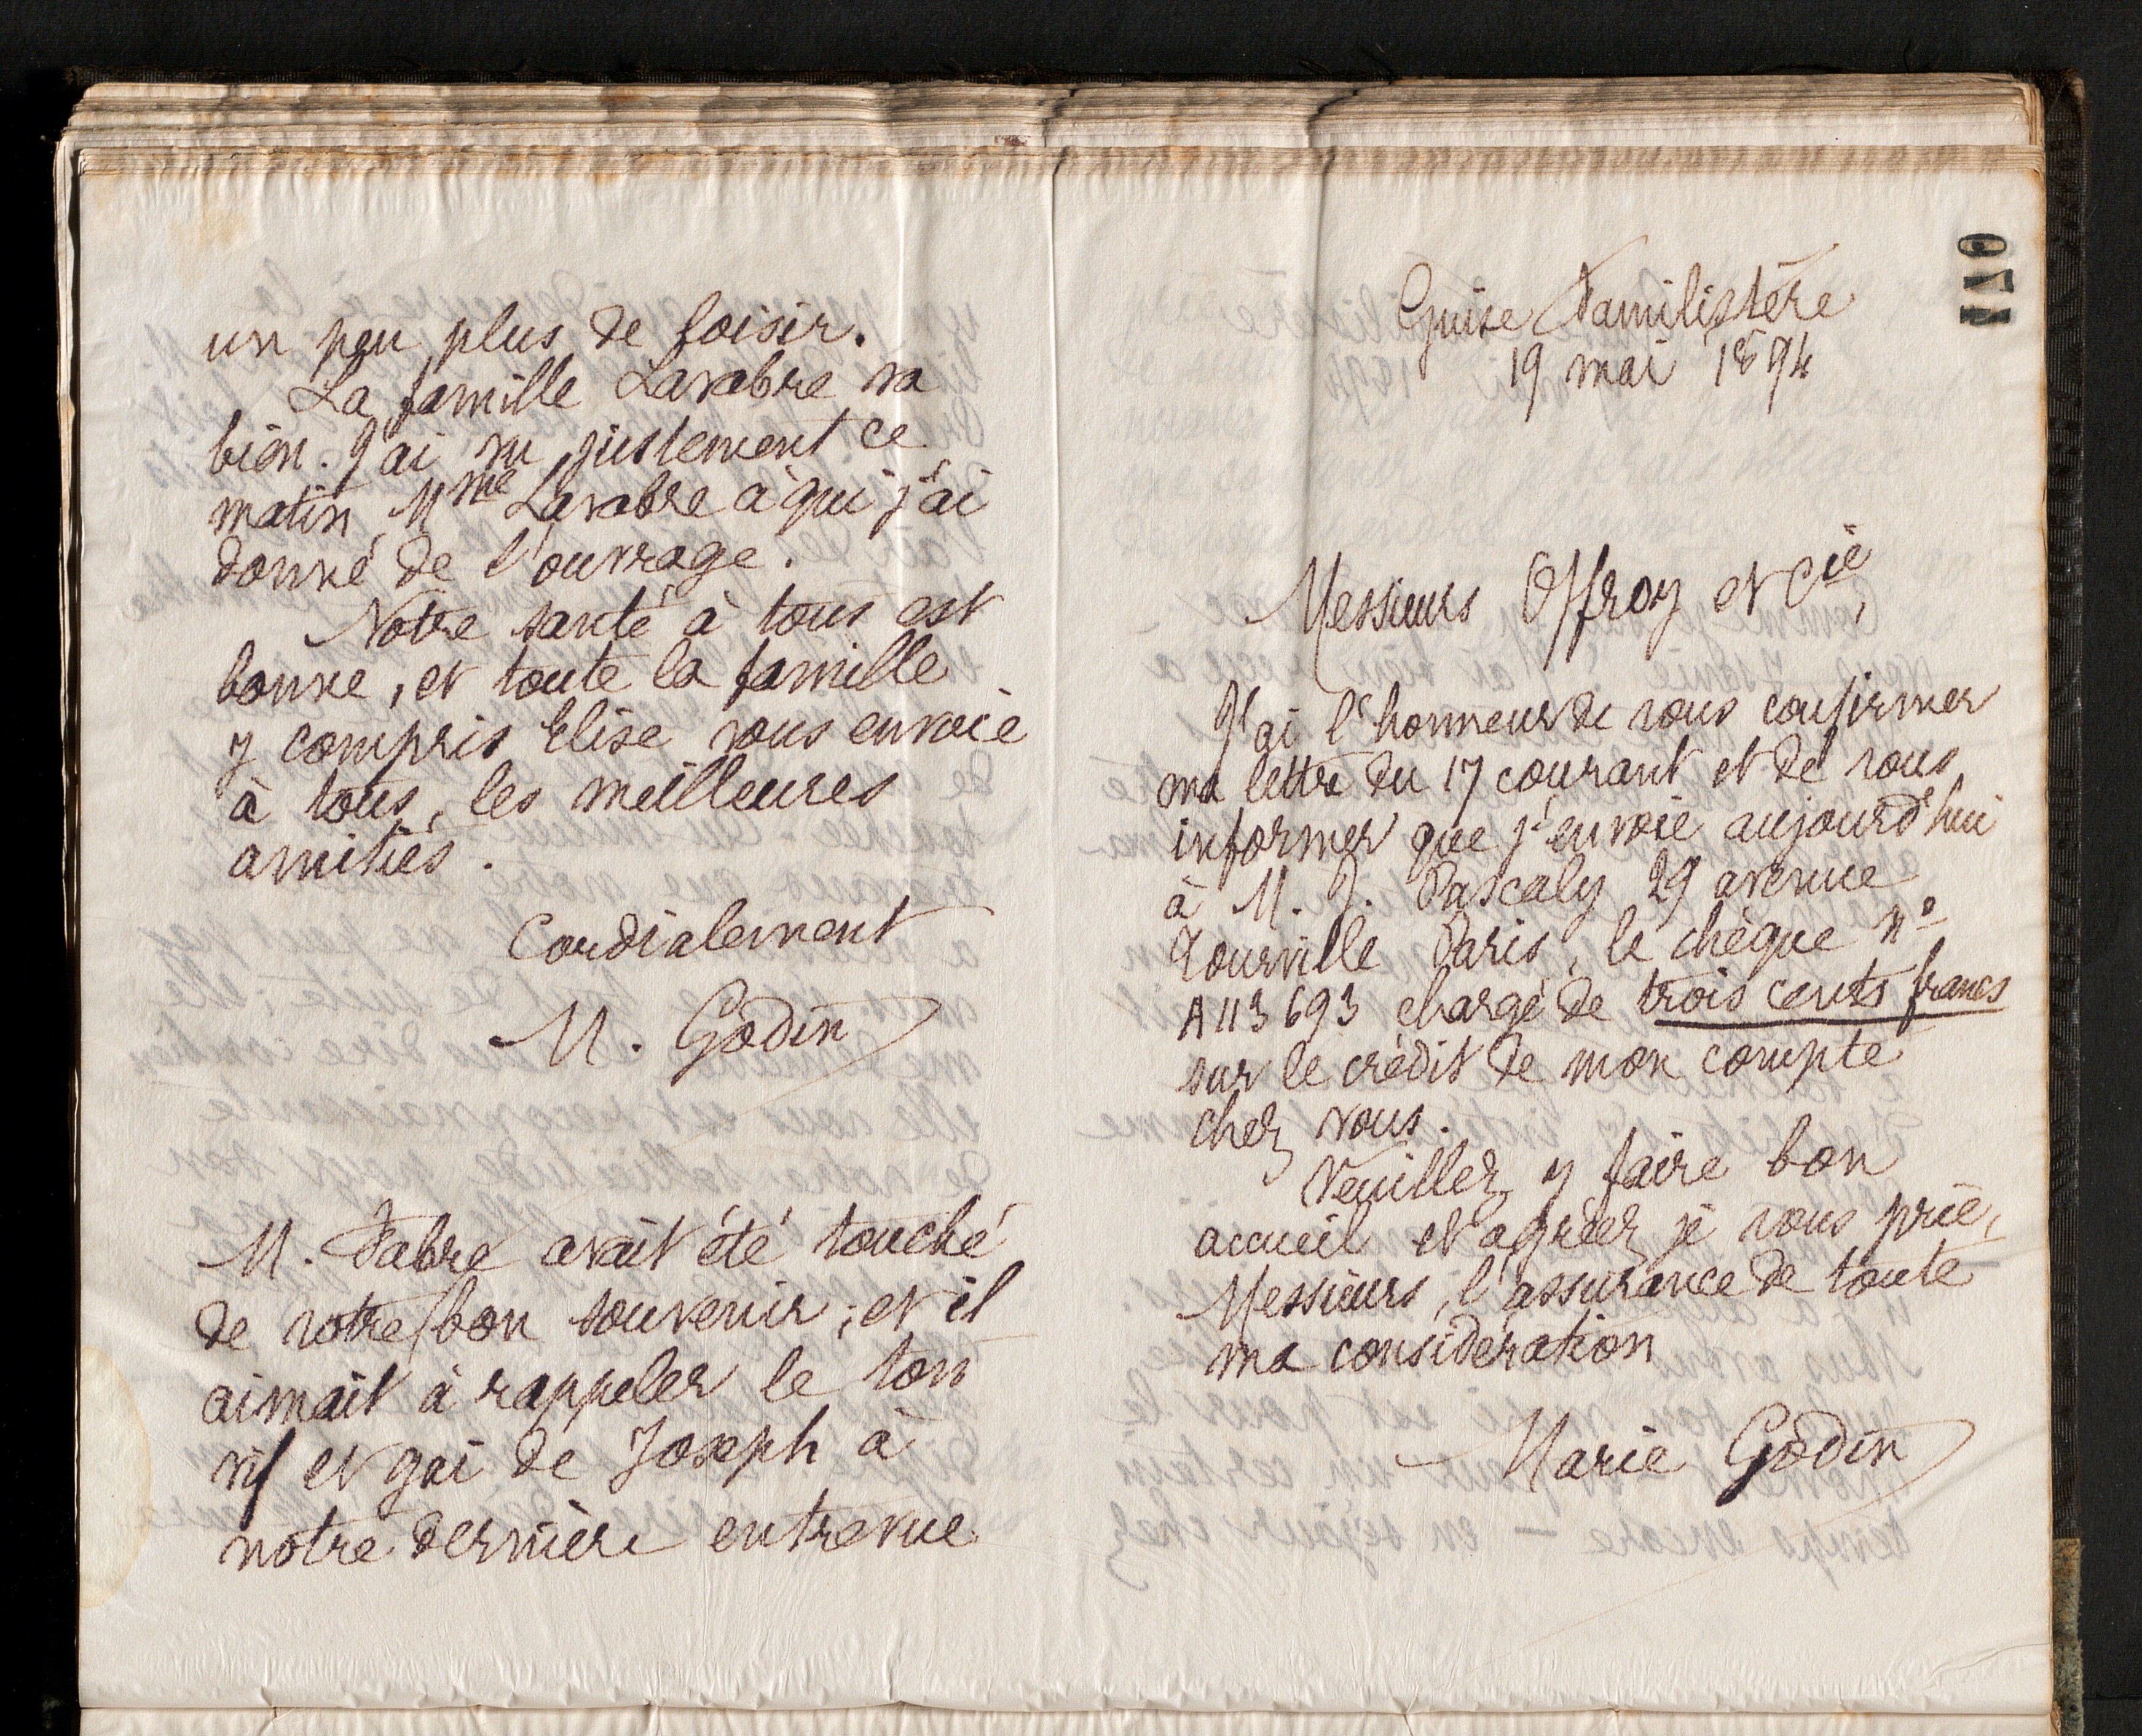 un peu plus de loisir.
La famille Lavabre va
bien. J'ai vu justement ce
matin, Mme Lavabre à qui j'ai
donné de l'ouvrage.
Notre santé à tous est
bonne, et toute la famille
y compris Elise vous envoie
à tous, les meilleures
amitiés.
Cordialement
M. Godin
M. Fabre avait été touché
de votre bon souvenir; et il
aimait à rappeler le ton
vif et gai de Joseph à
notre dernière entrevue
011
Guise Familistère
19 mai 1894
Messieurs Offroy et Cie,
J'ai l'honneur de vous confirmer
ma lettre du 17 courant et de vous
informer que j'envoie aujourd'hui
à M. J. Pascaly 29 avenue
Tourville Paris, le chèque no
A 113 693 chargé de trois cents francs
sur le crédit de mon compte
chez vous.
Veuillez y faire bon
accueil et agréez, je vous prie,
Messieurs, l'assurance de toute
ma considération
Marie Godin